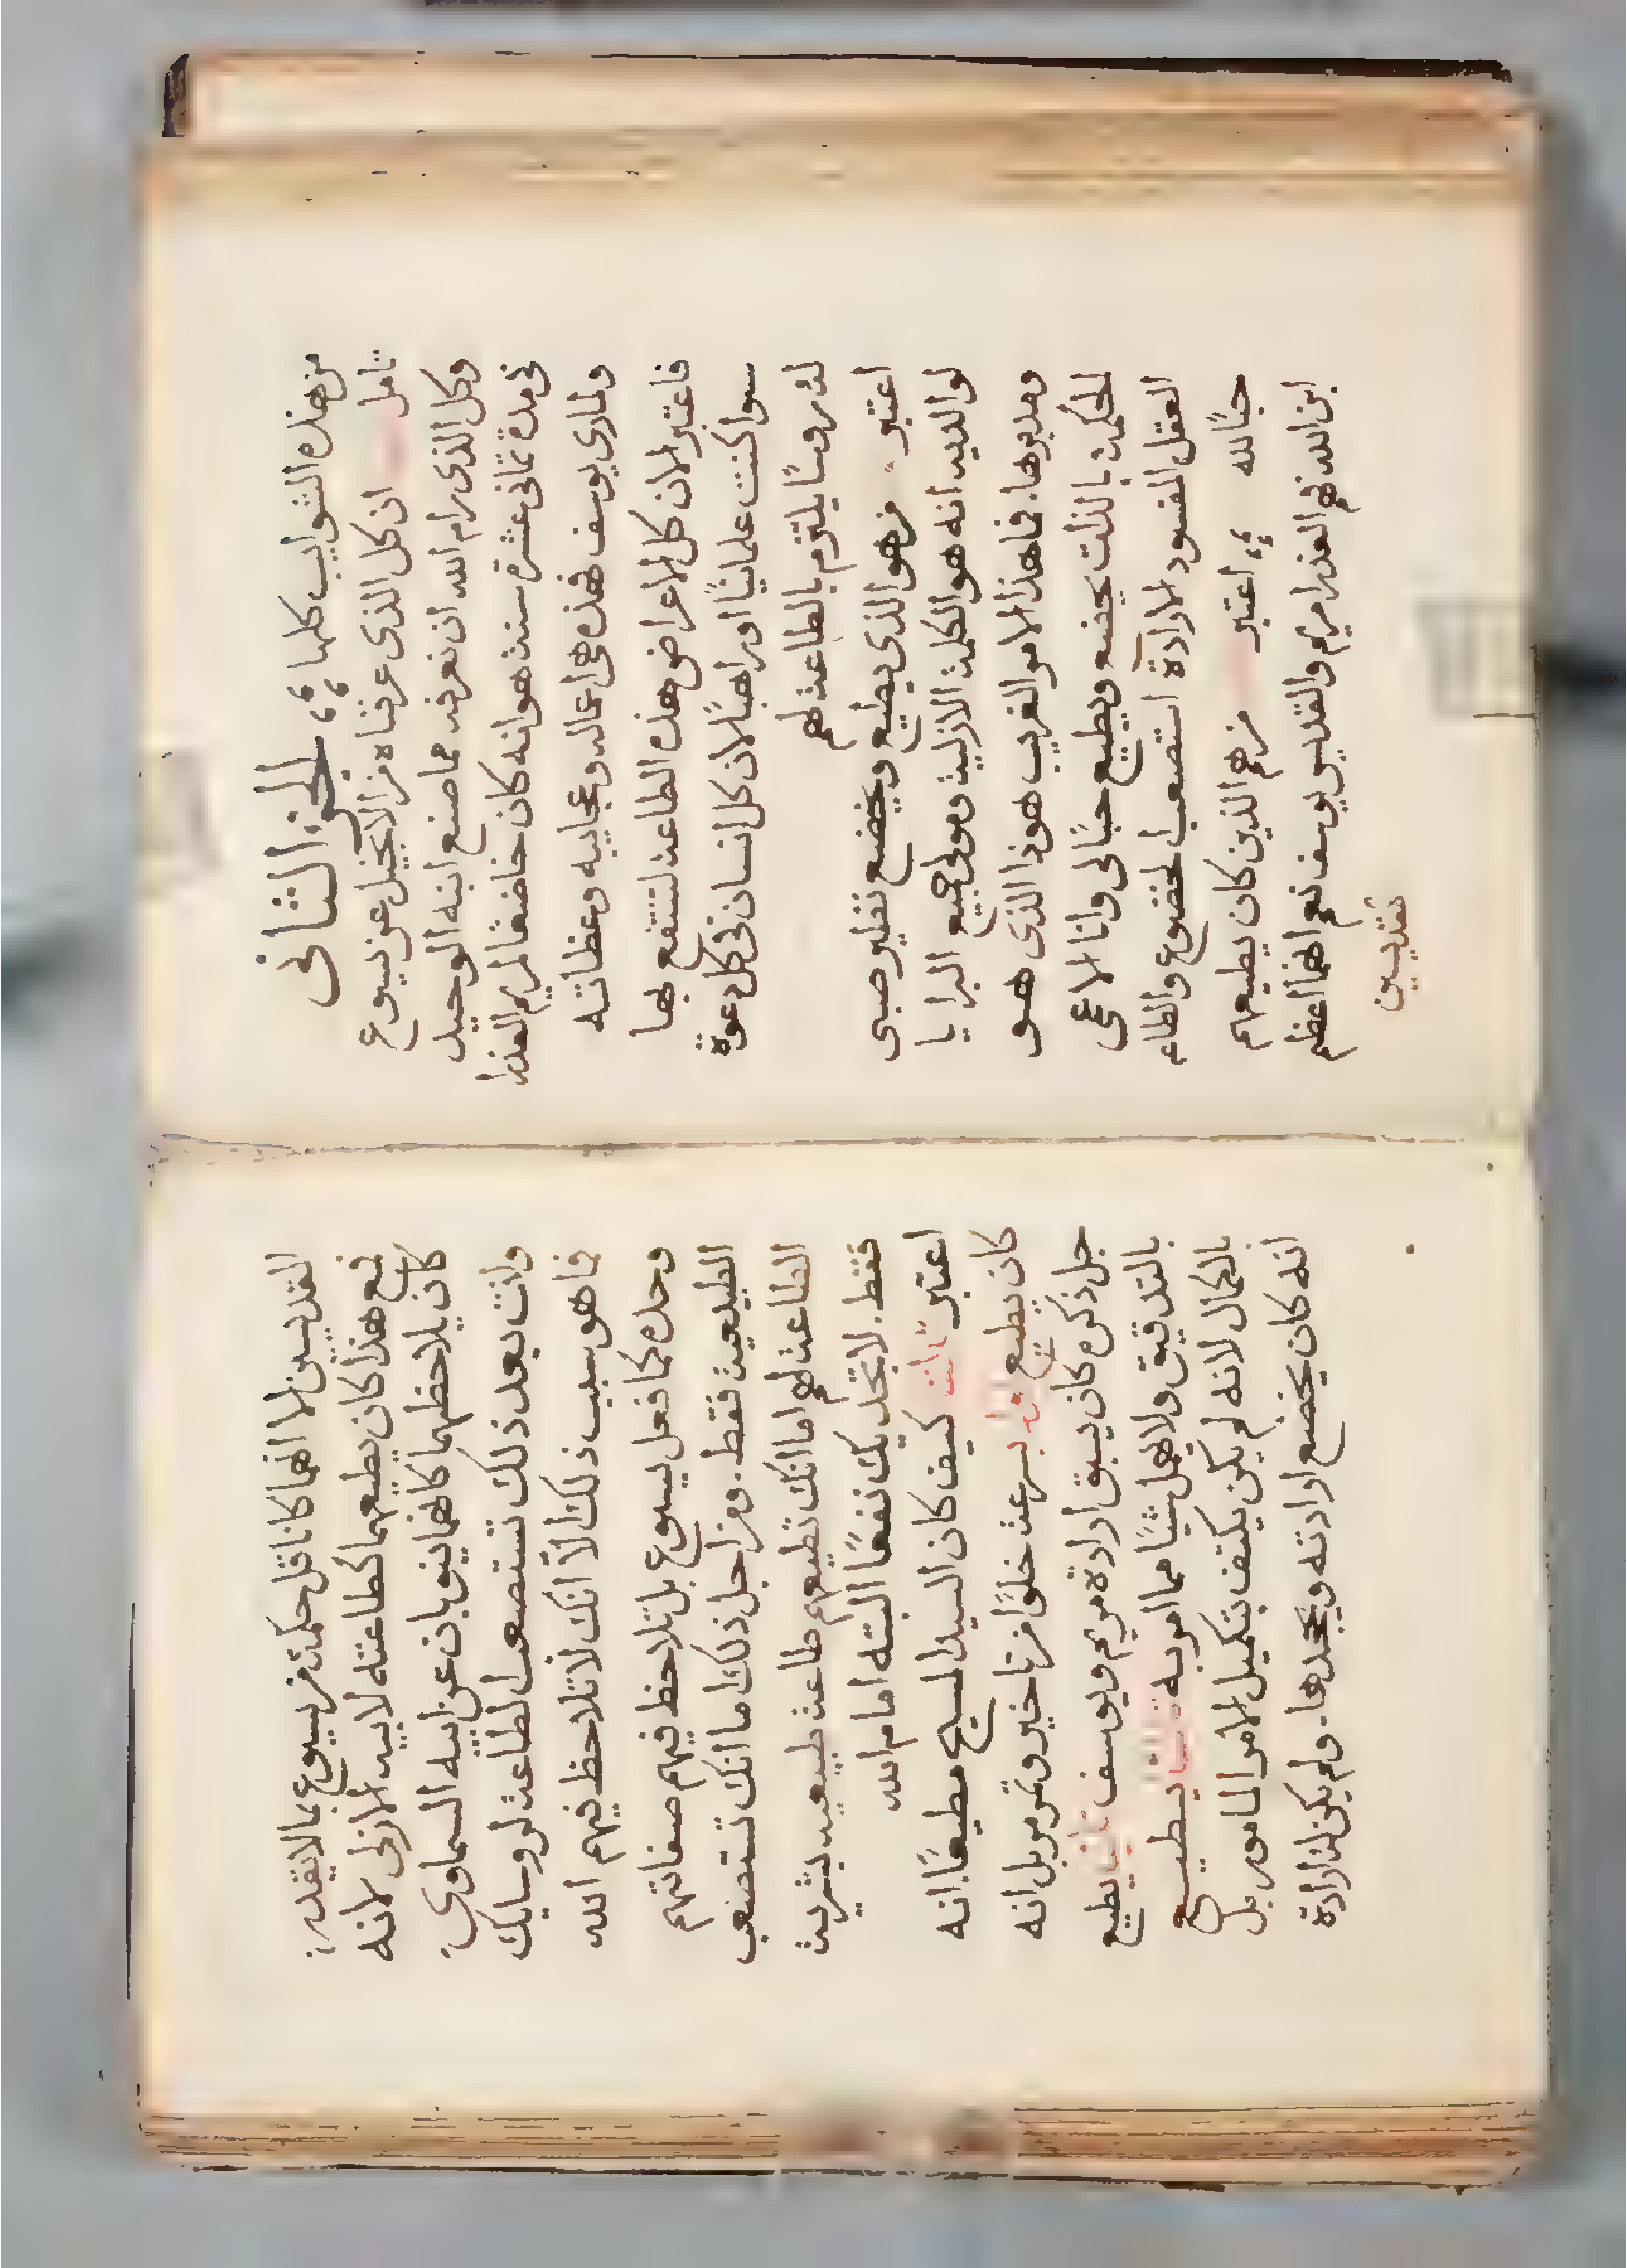 من هذه الشوايب كلها ؞ الجزء الثانى
تامل ان كل الذى عرفناه من الانجيل عن يسوع
وكل الذى رام الله ان نعرفه مما صنع ابنه الوحيد
فى مدة ثمانى عشرة سنه هو انه كان خاضعًا لمريم العذرا
ولمارى يوسف فهذه هى اعماله وعجايبه وعظاته
فاعتبر الان كل اعراض هذه الطاعه لتنتفع بها
سوا كنت علمانيًا او راهبًا لان كل انسان فى كل دعوة
له روسًا يلتزم بالطاعه لهم
اعتبر من هو الذى يطيع ويخضع نظير صبى
لوالديه انه هو الكلمه الازليه ومولى جميع البرايا
ومدبرها. فما هذا الامر الغريب هوذا الذى هو
الحكمه بالذات يخضع ويطيع حبًا لى وانا الاعمى
العقل المفسود الارادة استصعب الخضوع والطاعه
حبًا لله ؞ اعتبر من هم الذين كان يطيعهم
ابن الله فهم العذرا مريم والقديس يوسف نعم انهما اعظم
قديسين
القديسين الا انهما كانا اقل حكمة من يسوع بما لا يقدر:
فمع هذا كان يطيعهما كطاعته لابيه الازلى لانه
كان يلاحظهما كانهما ينوبان عن ابيه السماوى
وانت بعد ذلك تستصعب الطاعه لروسايك
فما هو سبب ذلك الّا انك لا تلاحظ فيهم الله
وحده كما فعل يسوع بل تلاحظ فيهم صفاتهم
الطبيعيه فقط. ومن اجل ذلك اما انك تستصعب
الطاعه لهم اما انك تطيعهم طاعه طبيعيه بشريه
فقط. لا تجديك نفعًا البته امام الله
اعتبر كيف كان السيد المسيح مطيعًا انه
كان يطيع بسرعه خلوًا من تاخير وتمرمر بل انه
جل ذكره كان يسبق ارادة مريم ويوسف ثانيا يطيع
بالتدقيق ولا يهمل شيًا مما امر به ثالثا يطيع
بالكمال لانه لم يكن يكتف بتكميل الامر المامور بل
انه كان يخضع ارادته ويجحدها. ولم يكن له ارادة